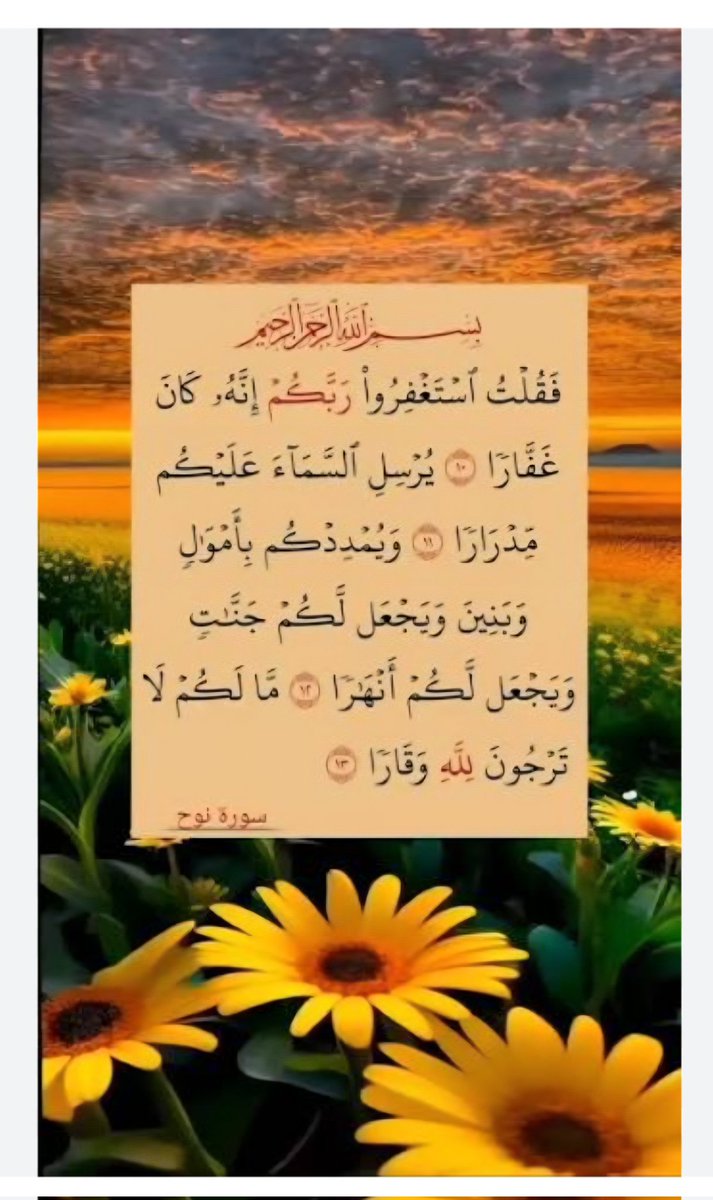 بِسْمِ ٱللَّهِ ٱلرَّحْمَٰنِ ٱلرَّحِيمِ
فَقُلْتُ ٱسْتَغْفِرُوا۟ رَبَّكُمْ إِنَّهُۥ كَانَ
غَفَّارًا ١٠ يُرْسِلِ ٱلسَّمَآءَ عَلَيْكُم
مِّدْرَارًا ١١ وَيُمْدِدْكُم بِأَمْوَٰلٍ
وَبَنِينَ وَيَجْعَل لَّكُمْ جَنَّٰتٍ
وَيَجْعَل لَّكُمْ أَنْهَٰرًا ١٢ مَّا لَكُمْ لَا
تَرْجُونَ لِلَّهِ وَقَارًا ١٣
سورة نوح